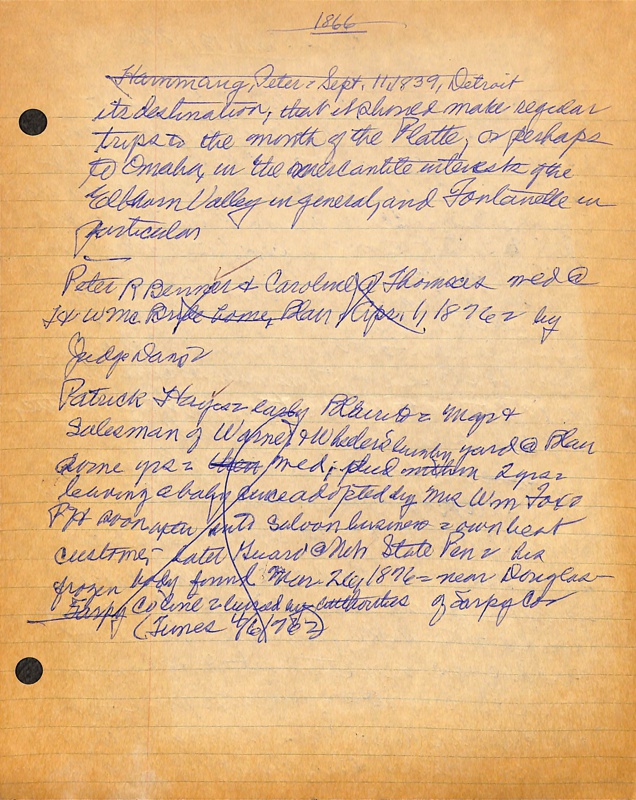 1866
Hammang, Peter = Sept. 11, 1839, Detroit
its destination, that it should make regular
trips to the mouth of the Platte, or perhaps
to Omaha, in the mercantile interests of the
Elkhorn Valley in general, and Fontanelle in
particular
Peter R Benner & Caroline J Thomas med @
J W McBride home, Blair Apr. 1, 1876 by
Judge
Patrick Hayes early Blairite = Mgr &
Salesman of Warner & Wheeler's lumber yard @ Blair
some yrs = med; died within 2 yrs
leaving a baby since adopted by Mrs Wm Fox
PH soon after into saloon business = own best
customer later Guard @ Neb State Pen his
frozen body found Mar 26, 1876 = near Douglas-
Sarpy Co line = buried by authorities of Sarpy Co
(Times 4/6/76)